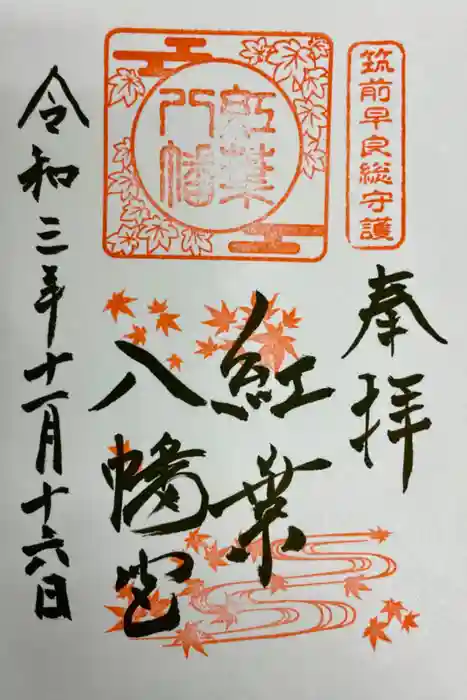 筑前早良総守護
奉拝
紅葉
八幡
紅葉
八幡宮
令和三年十一月十六日